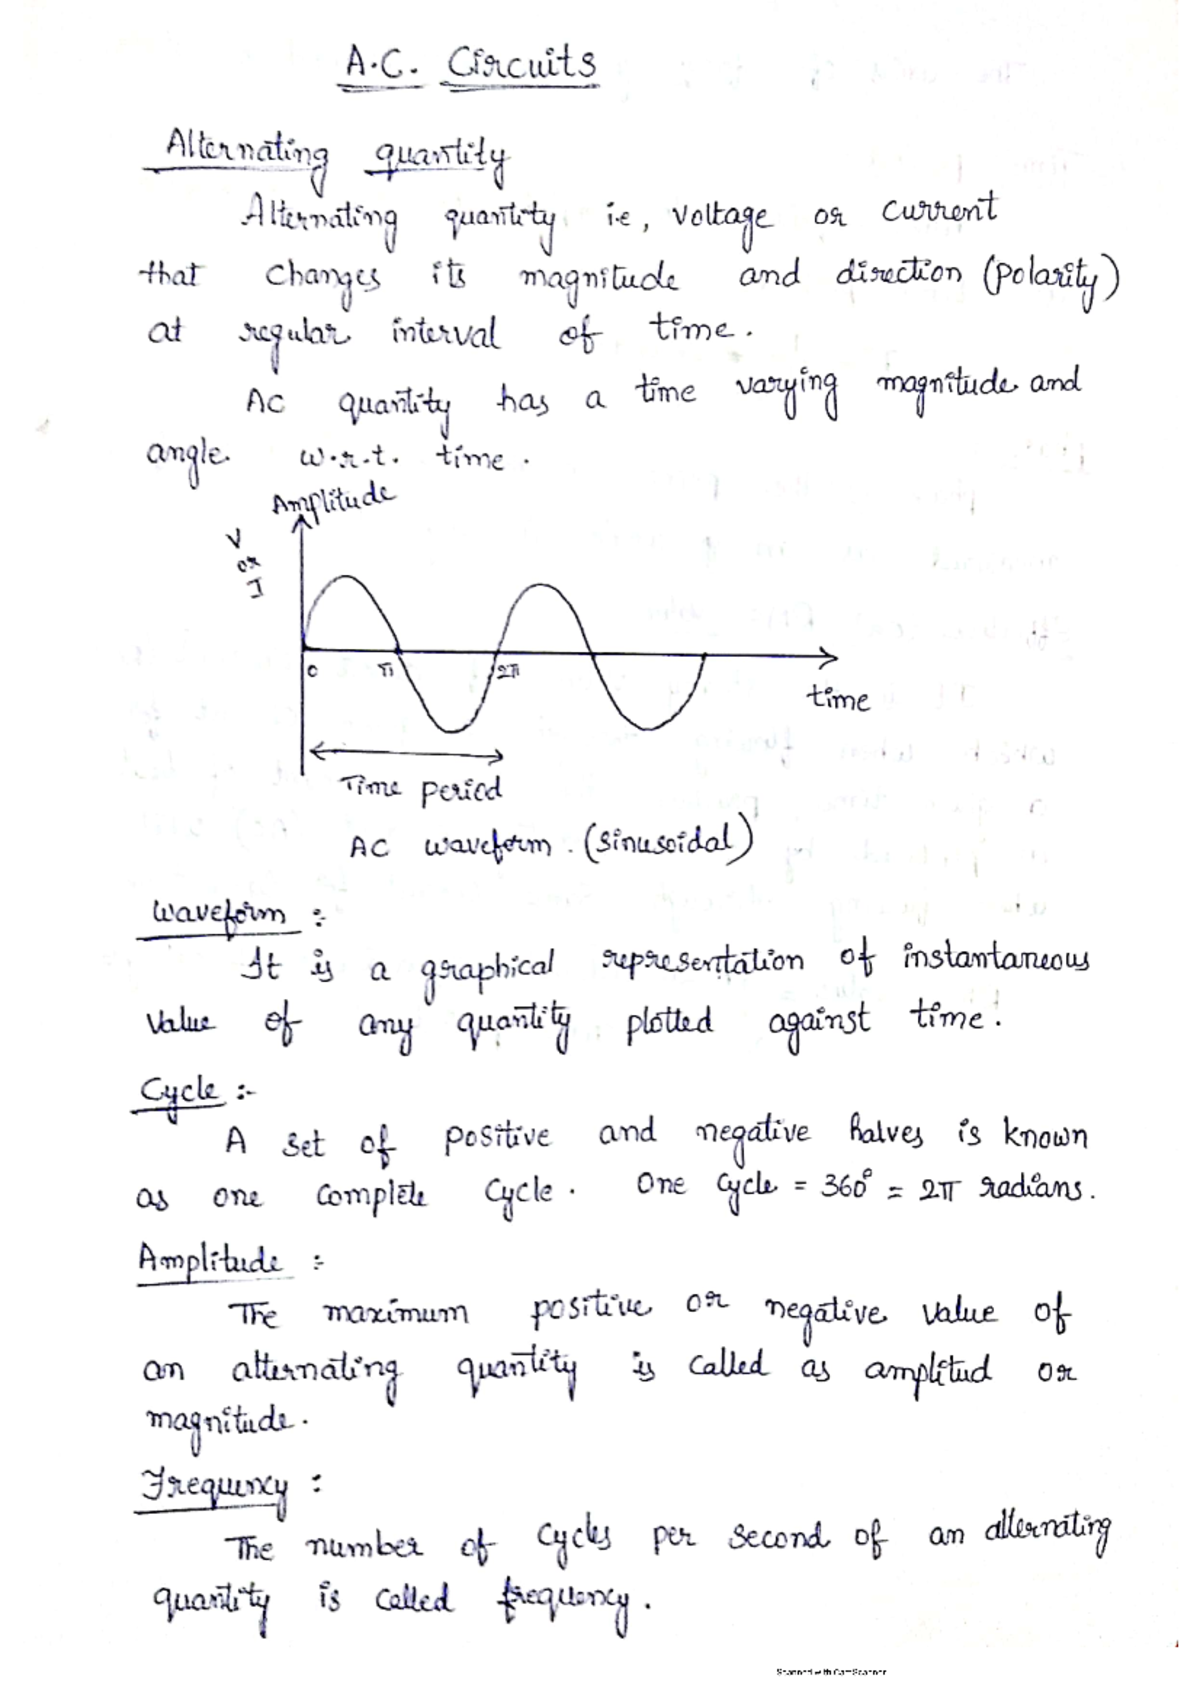 A.C. Circuits
Alternating quantity
Alternating quantity i.e, voltage or current
that changes its magnitude and direction (polarity)
at regular interval of time.
AC quantity has a time varying magnitude and
angle w.r.t. time.
Amplitude
V
or
I
0 π 2π
time
Time period
AC waveform. (sinusoidal)
Waveform :-
It is a graphical representation of instantaneous
value of any quantity plotted against time.
Cycle :-
A set of positive and negative halves is known
as one complete cycle. One cycle = 360° = 2π radians.
Amplitude :-
The maximum positive or negative value of
an alternating quantity is called as amplitud or
magnitude.
Frequency :
The number of cycles per second of an alternating
quantity is called frequency.
Scanned with CamScanner